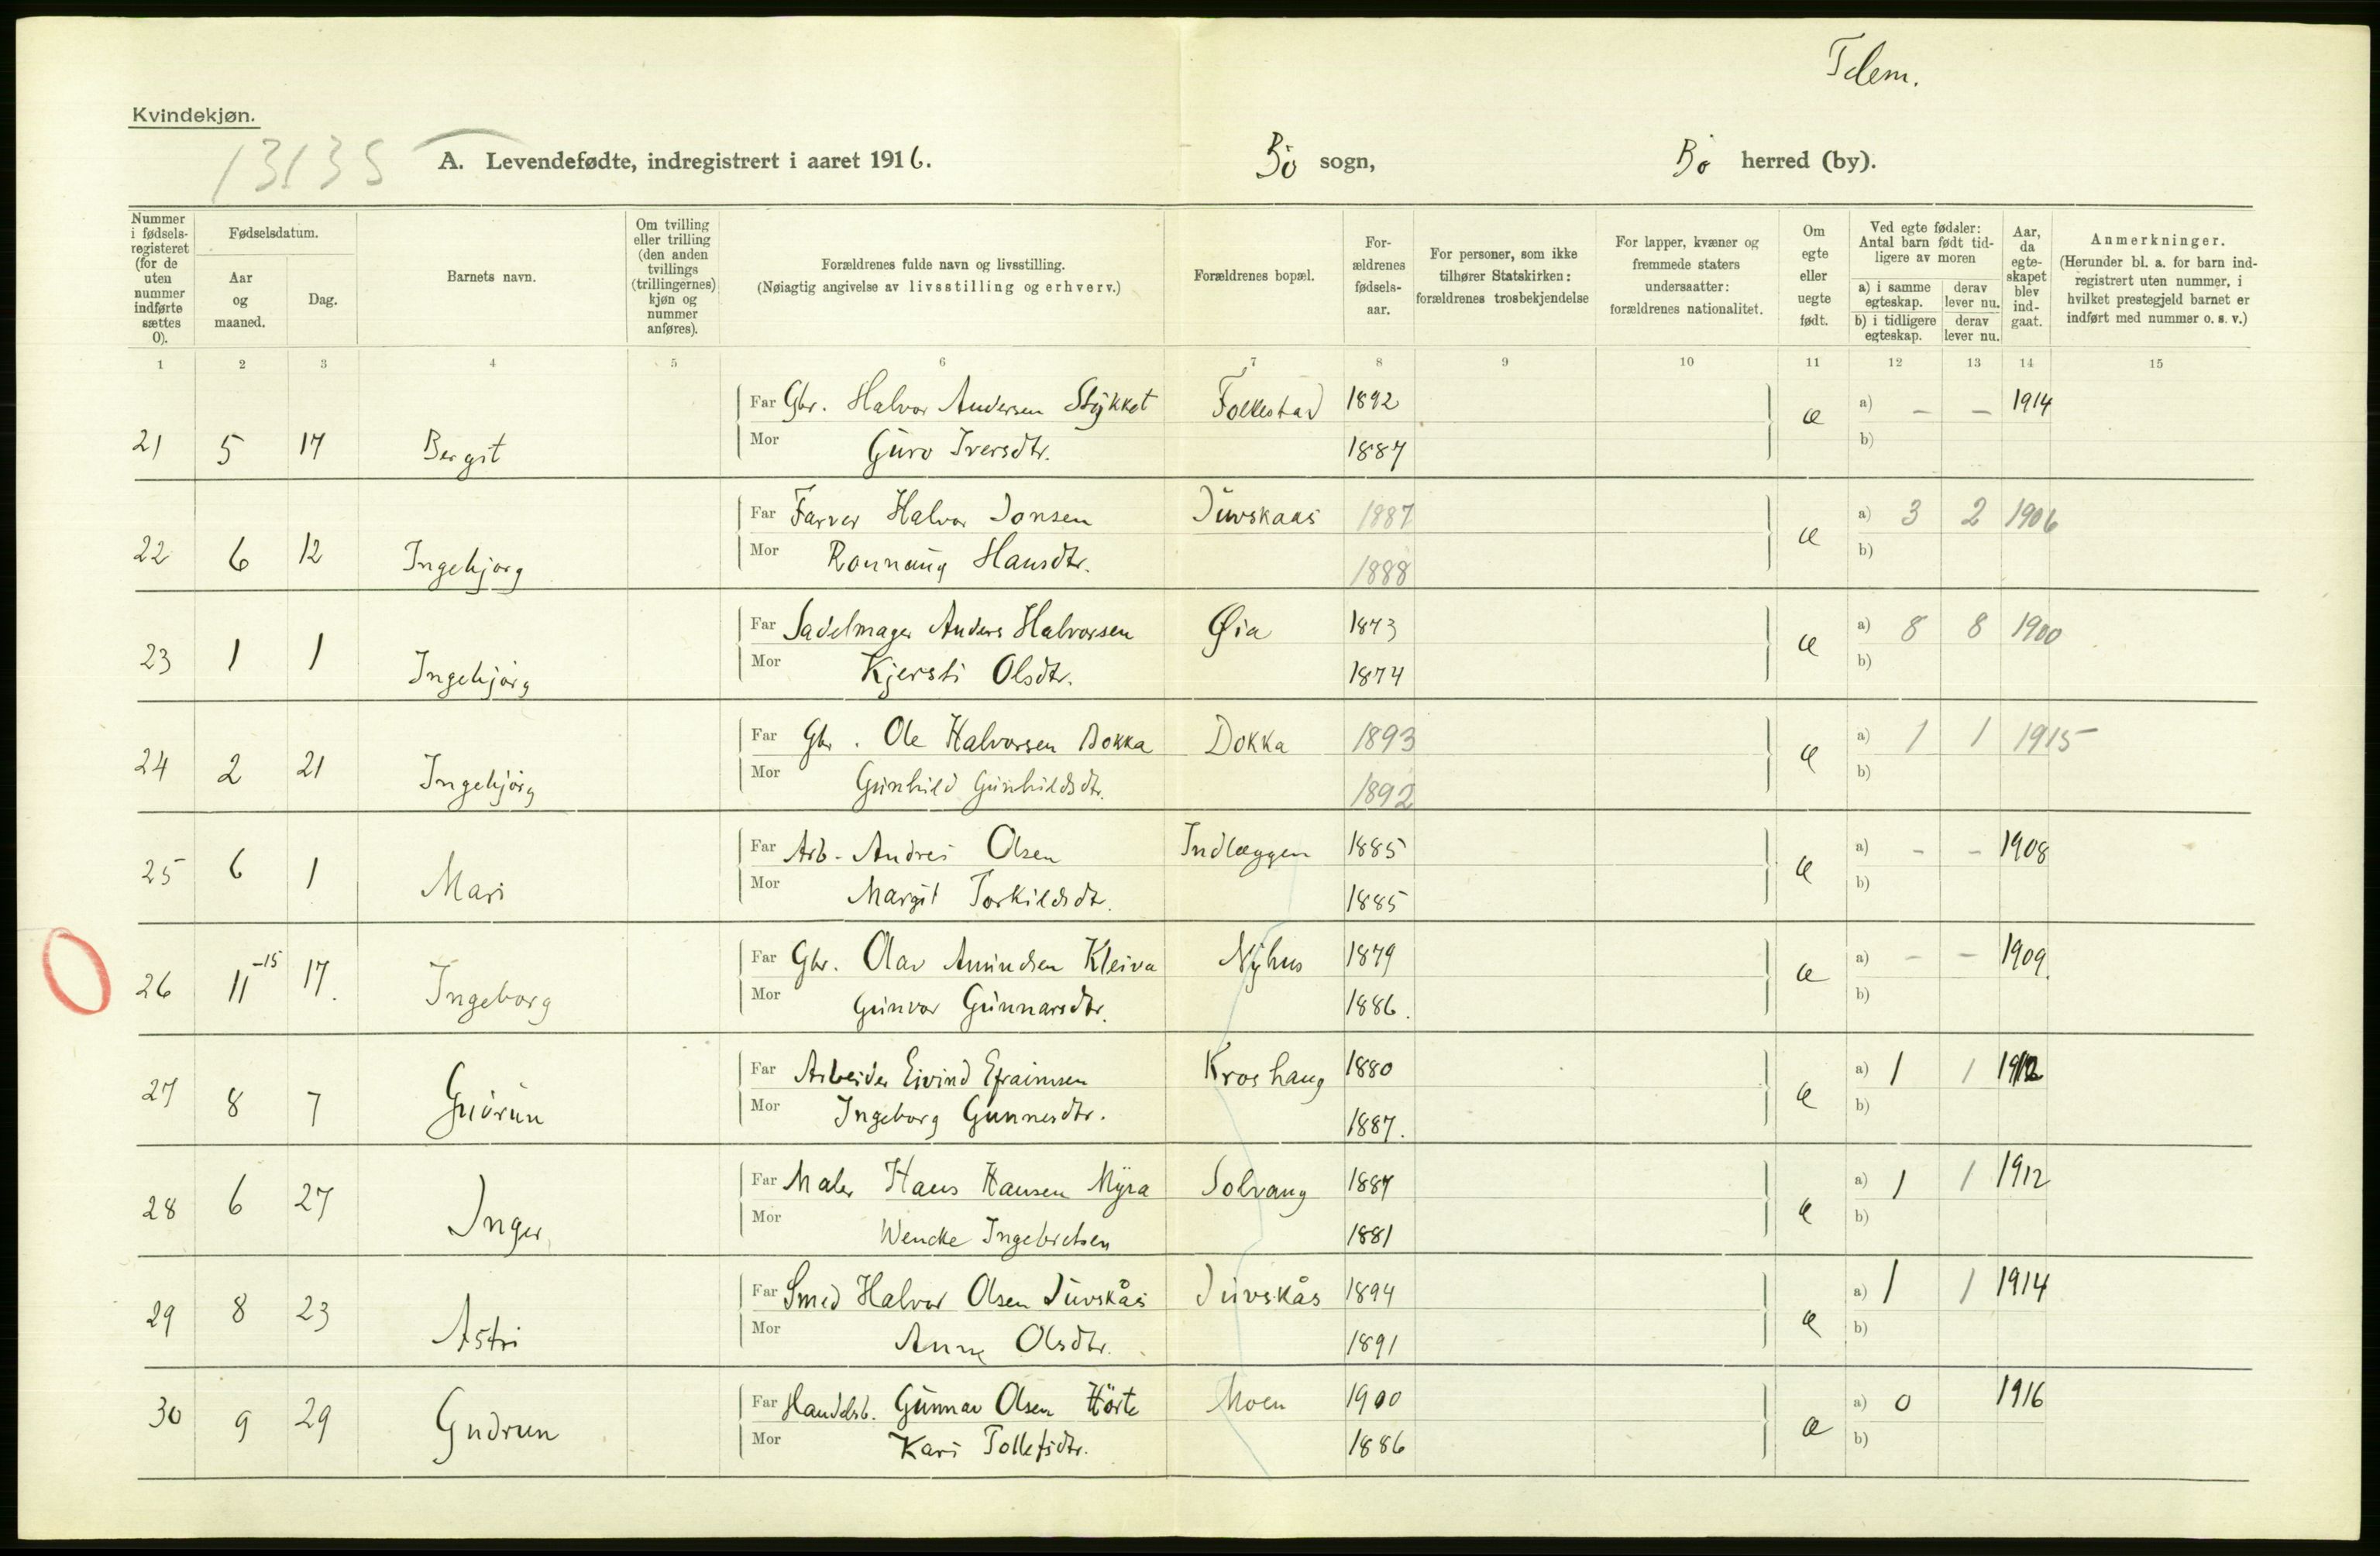 Telem.
Kvindekjøn.
13135
A. Levendefødte, indregistrert i aaret 1916. Bö sogn, Bø herred (by).
Nummer i fødsels-registeret (for de uten nummer indførte sættes 0). Fødselsdatum. Aar og maaned. Dag. Barnets navn. Om tvilling eller trilling (den anden tvillings (trillingernes) kjøn og nummer anføres). Forældrenes fulde navn og livsstilling. (Nøiagtig angivelse av livsstilling og erhverv.) Forældrenes bopæl. For-ældrenes fødsels-aar. For personer, som ikke tilhører Statskirken: forældrenes trosbekjendelse For lapper, kvæner og fremmede staters undersaatter: forældrenes nationalitet. Om egte eller uegte født. Ved egte fødsler: Antal barn født tid-ligere av moren a) i samme egteskap. derav lever nu. b) i tidligere egteskap. derav lever nu. Aar, da egte-skapet blev ind-gaat. Anmerkninger. (Herunder bl. a. for barn ind-registrert uten nummer, i hvilket prestegjeld barnet er indført med nummer o. s. v.)
1 2 3 4 5 6 7 8 9 10 11 12 13 14 15
Far Gbr. Halvor Andersen Stykket Folkestad 1892 a) – – 1914
21 5 17 Bergit Mor Guro Iversdtr. 1887 e b)
Far Farver Halvor Jonsen Juvskaas 1887 a) 3 2 1906
22 6 12 Ingebjørg Mor Rønnaug Hansdtr. 1888 e b)
Far Sadelmager Anders Halvorsen Øia 1873 a) 8 8 1900
23 1 1 Ingebjørg Mor Kjersti Olsdtr. 1874 e b)
Far Gbr. Ole Halvorsen Dokka Dokka 1893 a) 1 1 1915
24 2 21 Ingebjörg Mor Gunhild Gunhildsdtr. 1892 e b)
Far Arb. Andres Olsen Indlæggen 1885 a) - - 1908
25 6 1 Mari Mor Margit Torkildsdtr. 1885 e b)
Far Gbr. Olav Amundsen Kleiva Nyhus 1879 a) - - 1909.
26 11-15 17. Ingeborg Mor Gunvor Gunnarsdtr. 1886. e b)
Far Arbeider Eivind Efraimsen Kroshaug 1880 a) 1 1 1912
27 8 7 Gudrun Mor Ingeborg Gunnesdtr. 1887. e b)
Far Maler Hans Hansen Myra Solvang 1887 a) 1 1 1912
28 6 27 Inger Mor Wencke Ingebretsen 1881 e b)
Far Smed Halvor Olsen Juvskås Juvskås 1894 a) 1 1 1914
29 8 23 Astri Mor Anne Olsdtr. 1891 e b)
Far Handelsb. Gunnar Olsen Hörte Moen 1900 a) 0 1916
30 9 29 Gudrun Mor Kari Tollefsdtr. 1886 e b)